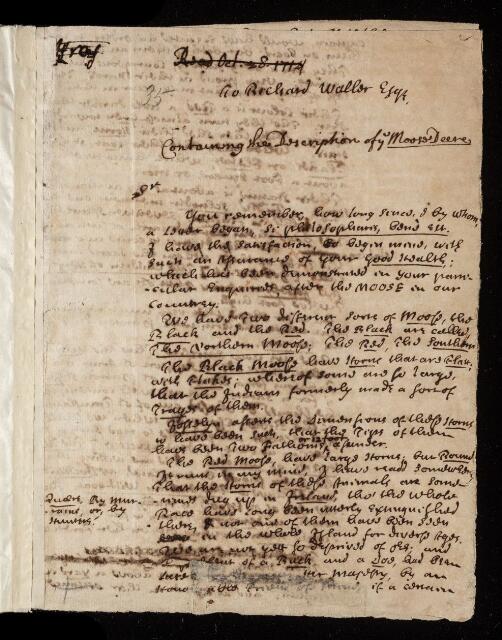 Read Oct. 28. 1714
25
To Richard Waller Esqr.
Containing the Description of ye Moose-Deere
Sr
You remember, how long since, & by whom,
a Letter began, Si philosopharis, bene est.
I have the satisfaction, to begin mine, with
such an Assurance of your Good Health;
which has been demonstrated in your parti-
cular Enquiries after the MOOSE in our
Countrey.
We have Two distinct sorts of Moose, the
Black and the Red. The Black are called,
The Northern Moose; The Red, The Southern
The Black Moose have Horns that are Flatt;
with Flakes; whereof some are so large
that the Indians formerly made a sort of
Trayes of them.
Josselyn affirms the Dimensions of these Horns
to have been such, that the Tips of them
have been Two Fathoms asunder.
or 12 foot
The Red Moose, have large Horns; but Round
It runs in my mind, I have read somewhere,
That the Horns of these Animals are some-
times dug up in Ireland, tho' the whole
Race have long been utterly extinguished
there, & not one of them have been seen
in the whole Island for diverse Ages.
Quaere, By Mur-
rains, or by
We are not yet so deprived of
of a Buck and a Doe, had been
Her Majesty, by an
of a certain